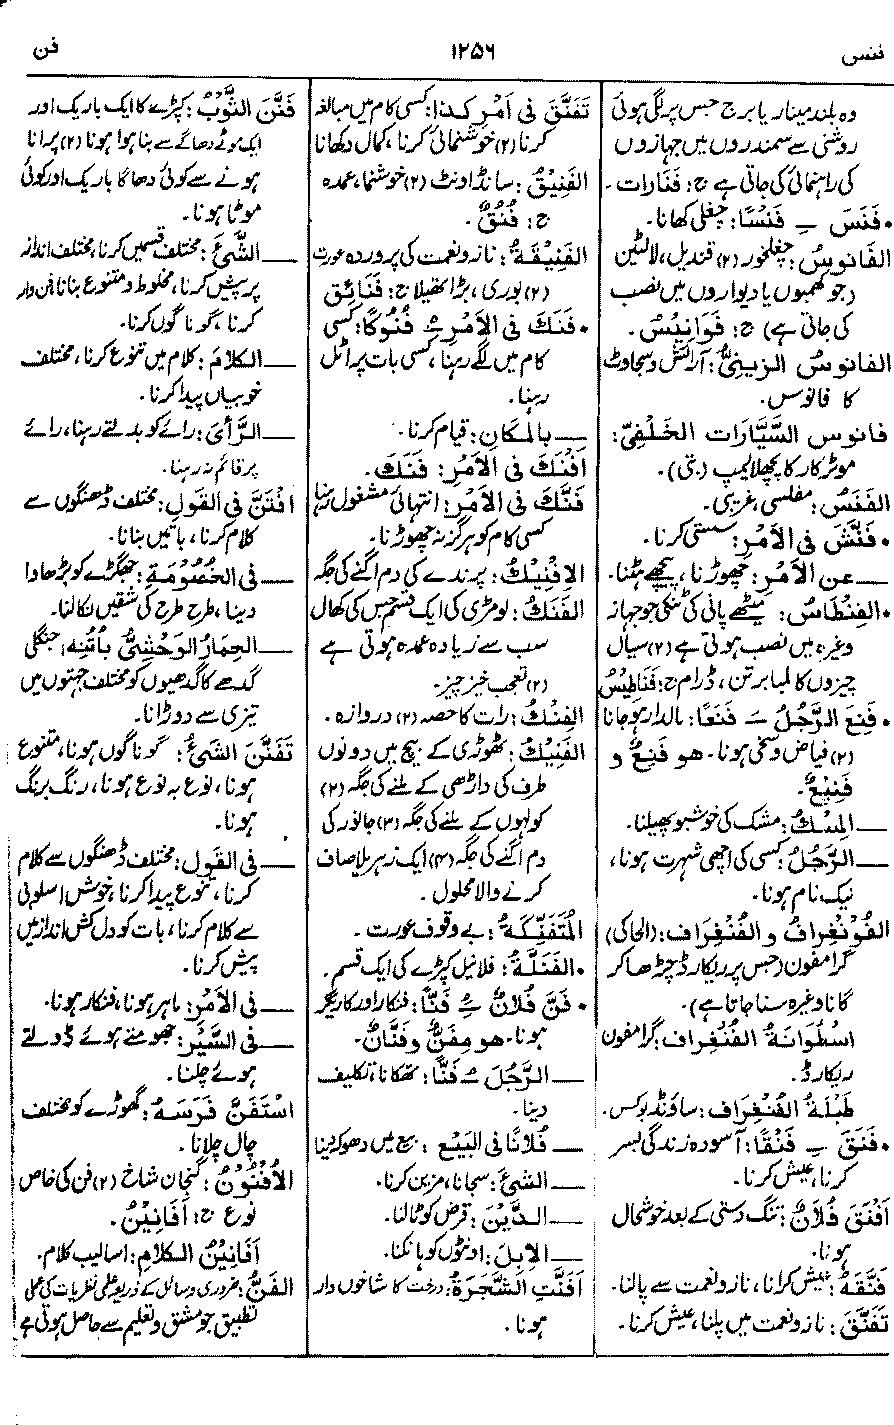 فنس
۱۲۵۶
فن
وہ بلند مینار یا برج جس پر لگی ہوئی
روشنی سے سمندروں میں جہازوں
کی راہنمائی کی جاتی ہے ج: فَنَارات۔
• فَنَسَ ـِ فَنْسًا: چغلی کھانا۔
الفَانُوسُ: چغلخور (۲) قندیل، لالٹین
(جو کھمبوں یا دیواروں میں نصب
کی جاتی ہے) ج: فَوَانِیْسُ۔
الفانوسُ الزِّینِیُّ: آرائش وسجاوٹ
کا فانوس۔
فانوس السَّیَّارات الخَلْفِیّ:
موٹر کار کا پچھلا لیمپ (بتی)۔
الفَنَسُ: مفلسی، غریبی۔
• فَنَّشَ فی الأمْرِ: سستی کرنا۔
ــــ عن الأمْرِ: چھوڑنا، پیچھے ہٹنا۔
• الفِنْطَاسُ: میٹھے پانی کی ٹنکی جو جہاز
وغیرہ میں نصب ہوتی ہے (۲) سیال
چیزوں کا لمبا برتن، ڈرام ج: فَنَاطِیْسُ
• فَنِعَ الرَّجُلُ ـَ فَنَعًا: مالدار ہو جانا
(۲) فیاض وسخی ہونا۔ ھو فَنِعٌ و
فَنِیْعٌ۔
ــــ المِسْکُ: مشک کی خوشبو پھیلنا۔
ــــ الرَّجُلُ: کسی کی اچھی شہرت ہونا،
نیک نام ہونا۔
الفُوْنْغِرافُ و الفُنْغِرَاف: (الحاکی)
گرامفون (جس پر ریکارڈ چڑھا کر
گانا وغیرہ سنا جاتا ہے)۔
اسْطُوَانَۃُ الفُنْغِراف: گرامفون
ریکارڈ۔
طَبْلَۃُ الفُنْغِرَاف: ساؤنڈ بوکس۔
• فَنَقَ ـِ فَنْقًا: آسودہ زندگی بسر
کرنا، عیش کرنا۔
أفْنَقَ فُلَانٌ: تنگ دستی کے بعد خوشحال
ہونا۔
فَنَّقَهُ: عیش کرانا، ناز ونعمت سے پالنا۔
تَفَنَّقَ: ناز ونعمت میں پلنا، عیش کرنا۔
تَفَنَّقَ فی أمْرِ کذا: کسی کام میں مبالغہ
کرنا (۲) خوشنمائی کرنا، کمال دکھانا
الفَنِیْقُ: سانڈ اونٹ (۲) خوشنما، عمدہ
ج: فُنُقٌ۔
الفَنِیْقَۃُ: ناز ونعمت کی پروردہ عورت
(۲) بوری، بڑا تھیلا ج: فَنَائِق
• فَنَکَ فی الأمْرِ ـُ فُنُوکًا: کسی
کام میں لگے رہنا، کسی بات پر اٹل
رہنا۔
ــــ بالمکَانِ: قیام کرنا۔
أفْنَکَ فی الأمْرِ: فَنَکَ۔
فَنَّکَ فی الأمْرِ: انتہائی مشغول رہنا
کسی کام کو ہرگز نہ چھوڑنا۔
الافْنِیْکُ: پرندے کی دم اگنے کی جگہ
الفَنَکُ: لومڑی کی ایک قسم جس کی کھال
سب سے زیادہ عمدہ ہوتی ہے
(۲) تعجب خیز چیز۔
الفِنْکُ: رات کا حصہ (۲) دروازہ۔
الفَنِیْکُ: ٹھوڑی کے بیچ میں دونوں
طرف کی داڑھی کے ملنے کی جگہ (۲)
کولہوں کے ملنے کی جگہ (۳) جانور کی
دم اگنے کی جگہ (۴) ایک زہریلا صاف
کرنے والا محلول۔
المُتَفَنِّکَۃُ: بے وقوف عورت۔
• الفَنَلَّۃُ: فلالین کپڑے کی ایک قسم۔
• فَنَّ فُلَانٌ ـِ فَنًّا: فنکار اور کاریگر
ہونا۔ ھو مِفَنٌّ وفَنَّانٌ۔
ــــ الرَّجُلَ ـُ فَنًّا: تھکانا، تکلیف
دینا۔
ــــ فُلَانًا فی البَیْعِ: بیع میں دھوکہ دینا
ــــ الشیْءَ: سجانا، مزین کرنا۔
ــــ الدَّیْنَ: قرض کو ٹالنا۔
ــــ الإبِلَ: اونٹوں کو ہانکنا۔
أفَنَّتِ الشَّجَرَۃُ: درخت کا شاخوں دار
ہونا۔
فَنَّنَ الثَّوْبُ: کپڑے کا ایک باریک اور
ایک موٹے دھاگے سے بنا ہوا ہونا (۲) پرانا
ہونے سے کوئی دھاگا باریک اور کوئی
موٹا ہونا۔
ــــ الشَّیْءَ: مختلف قسمیں کرنا، مختلف انداز
پر پیش کرنا، مخلوط ومتنوع بنانا، فن وار
کرنا، گوناگوں کرنا۔
ــــ الکلامَ: کلام میں تنوع کرنا، مختلف
خوبیاں پیدا کرنا۔
ــــ الرَّأْیَ: رائے کو بدلتے رہنا، رائے
پر قائم نہ رہنا۔
افْتَنَّ فی القَوْلِ: مختلف ڈھنگوں سے
کلام کرنا، باتیں بنانا۔
ــــ فی الخُصُوْمَۃِ: جھگڑے کو بڑھاوا
دینا، طرح طرح کی شقیں نکالنا۔
ــــ الحِمَارُ الوَحْشِیُّ بأُتُنِه: جنگلی
گدھے کا گدھیوں کو مختلف جہتوں میں
تیزی سے دوڑانا۔
تَفَنَّنَ الشیْءُ: گوناگوں ہونا، متنوع
ہونا، نوع بہ نوع ہونا، رنگ برنگ
ہونا۔
ــــ فی القَولِ: مختلف ڈھنگوں سے کلام
کرنا، تنوع پیدا کرنا، خوش اسلوبی
سے کلام کرنا، بات کو دل کش انداز میں
پیش کرنا۔
ــــ فی الأمْرِ: ماہر ہونا، فنکار ہونا۔
ــــ فی السَّیْرِ: جھومتے ہوئے ڈولتے
ہوئے چلنا۔
اسْتَفَنَّ فَرَسَهُ: گھوڑے کو مختلف
چال چلانا۔
الأُفْنُوْنُ: گنجان شاخ (۲) فن کی خاص
نوع ج: أفَانِیْنُ۔
أفَانِیْنُ الکلَامِ: اسالیب کلام۔
الفَنُّ: ضروری وسائل کے ذریعہ علمی نظریات کی عملی
تطبیق جو مشق وتعلیم سے حاصل ہوتی ہے